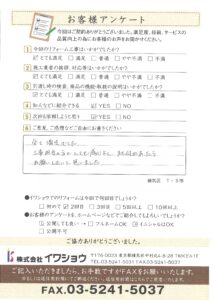 お客様アンケート
今回はご契約ありがとうございました。満足度、技術、サービスの
品質向上の為にお客様のお声をお聞かせください。
1 今回のリフォーム工事はいかがでしたか?
とても満足 満足 普通 やや不満 不満
2 施工業者の挨拶、対応等はいかがでしたか?
とても満足 満足 普通 やや不満 不満
3 引渡し時の検査、商品の機能・取扱の説明はいかがでしたか?
とても満足 満足 普通 やや不満 不満
4 知人などに紹介できる YES NO
5 次回も依頼しようと思う YES NO
6 ご意見、ご感想などご自由にお書きください
練馬区 T・S様
●イワショウでのリフォームは今回で何回目でしょうか?
初めて 2回目 3回目 5回以上 10回以上
●お客様のアンケートを、ホームページなどでご紹介してもよろしいでしょうか?
公開しても良い フルネームOK イニシャルならOK
公開不可
ご協力ありがとうございました。
株式会社イワショウ
〒176-0023 東京都練馬区中村北4-8-28
TEL.03-5241-5031 FAX.03-5241-5037
ご記入いただきましたら、お手数ですがFAXをお願いいたします。
FAX.03-5241-5037